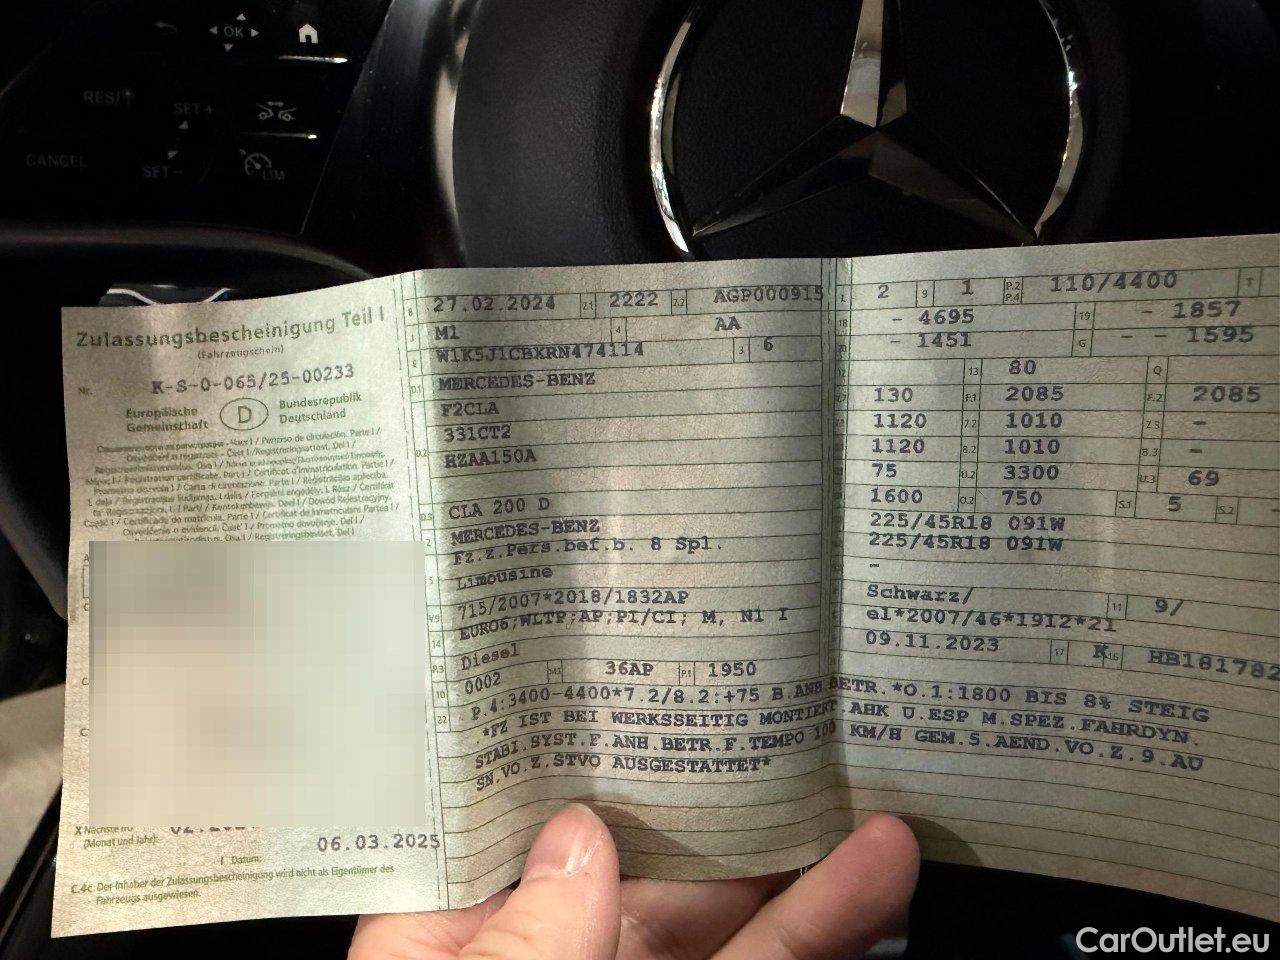 OK
RES/
SET +
CANCEL
SET -
LIM
Zulassungsbescheinigung Teil I
(Fahrzeugschein)
Nr. K-S-0-065/25-00233
Europäische Gemeinschaft D Bundesrepublik Deutschland
X Nächste HU
(Monat und Jahr):
06.03.2025
I Datum:
C.4c Der Inhaber der Zulassungsbescheinigung wird nicht als Eigentümer des
Fahrzeugs ausgewiesen.
B 27.02.2024 2.1 2222 2.2 AGP000915
J M1 4 AA
E W1K5J1CBXRN474114 3 6
D.1 MERCEDES-BENZ
F2CLA
D.2 331CT2
RZAA150A
D.3 CLA 200 D
2 MERCEDES-BENZ
5 Fz.z.Pers.bef.b. 8 Spl.
Limousine
V.9 715/2007*2018/1832AP
14 EURO6;WLTP;AP;PI/CI; M, N1 I
P.3 Diesel
10 0002 14.1 36AP P.1 1950
22 P.4:3400-4400*7.2/8.2:+75 B.ANH.BETR.*O.1:1800 BIS 8% STEIG
.*FZ IST BEI WERKSSEITIG MONTIERT.AHK U.ESP M.SPEZ.FAHRDYN.
STABI.SYST.F.ANH.BETR.F.TEMPO 100 KM/H GEM.5.AEND.VO.Z.9.AU
SN.VO.Z.STVO AUSGESTATTET*
L 2 9 1 P.2 P.4 110/4400 T
18 - 4695 19 - 1857
20 - 1451 G - - 1595
12 13 80 Q
V.7 130 F.1 2085 F.2 2085
7.1 1120 7.2 1010 7.3 -
8.1 1120 8.2 1010 8.3 -
U.1 75 U.2 3300 U.3 69
O.1 1600 O.2 750 S.1 5 S.2 -
225/45R18 091W
225/45R18 091W
-
Schwarz/ 11 9/
e1*2007/46*1912*21
09.11.2023 17 K 16 HB181782
CarOutlet.eu